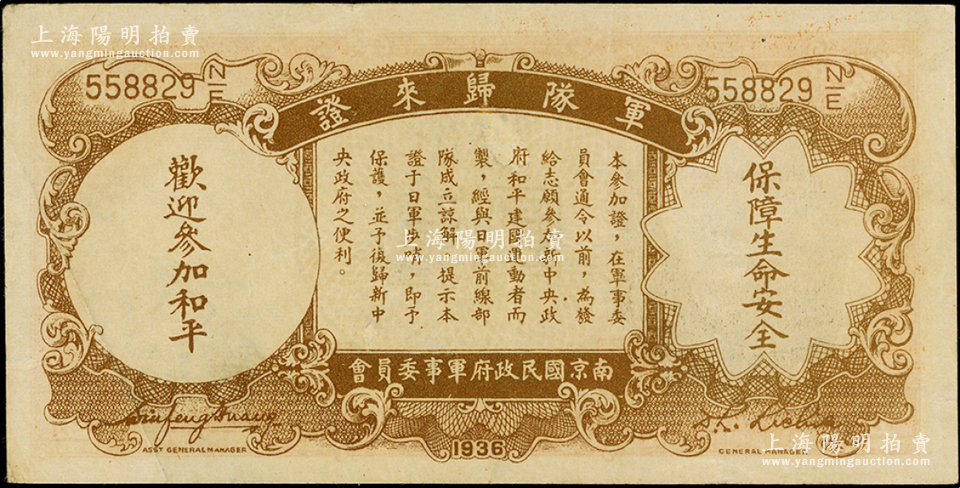 上海陽明拍賣
www.yangmingauction.com
558829 N/E
558829 N/E
軍隊歸來證
保障生命安全
本參加證,在軍事委
員會通令以前,為發
給志願參加新中央政
府和平建國運動者而
製,經與日軍前線部
隊成立諒解,提示本
證于日軍,即予
保護,並予復歸新中
央政府之便利。
歡迎參加和平
上海陽明拍賣
www.yangmingauction.com
南京國民政府軍事委員會
ASST GENERAL MANAGER
1936
GENERAL MANAGER
上海陽明拍賣
www.yangmingauction.com